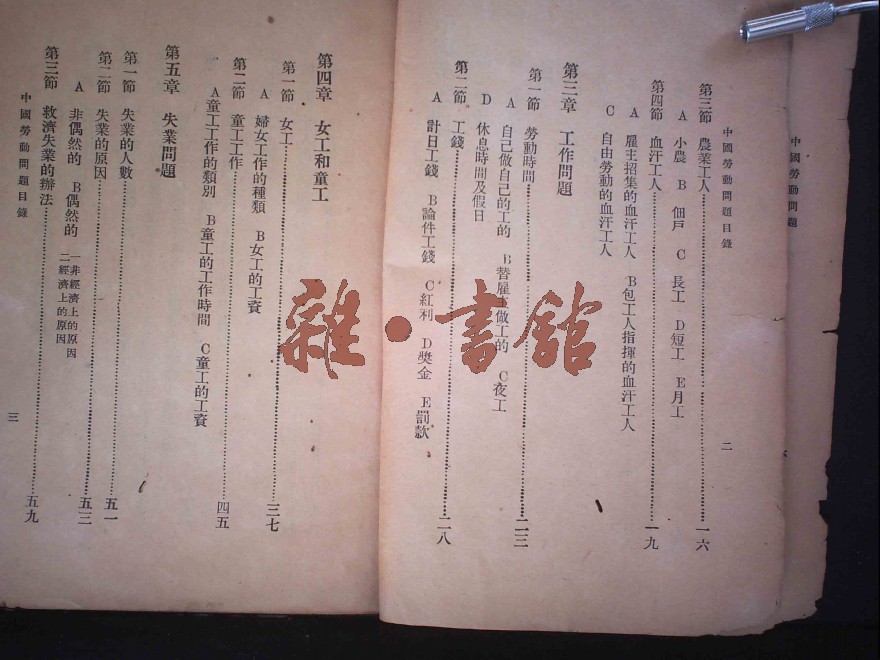 中國勞動問題
中國勞動問題目錄
二
第三節 農業工人……一六
A 小農 B 佃戶 C 長工 D 短工 E 月工
第四節 血汗工人……一九
A 雇主招集的血汗工人 B 包工人指揮的血汗工人
C 自由勞動的血汗工人
第三章 工作問題
第一節 勞動時間……二三
A 自己做自己的工的 B 替雇主做工的 C 夜工
D 休息時間及假日
第二節 工錢……二八
A 計日工錢 B 論件工錢 C 紅利 D 獎金 E 罰款
第四章 女工和童工
第一節 女工……三七
A 婦女工作的種類 B 女工的工資
第二節 童工工作……四五
A 童工工作的類別 B 童工的工作時間 C 童工的工資
第五章 失業問題
第一節 失業的人數……五一
第二節 失業的原因……五三
A 非偶然的 B 偶然的 一非經濟上的原因
二經濟上的原因
第三節 救濟失業的辦法……五九
中國勞動問題目錄
三
雜·書館